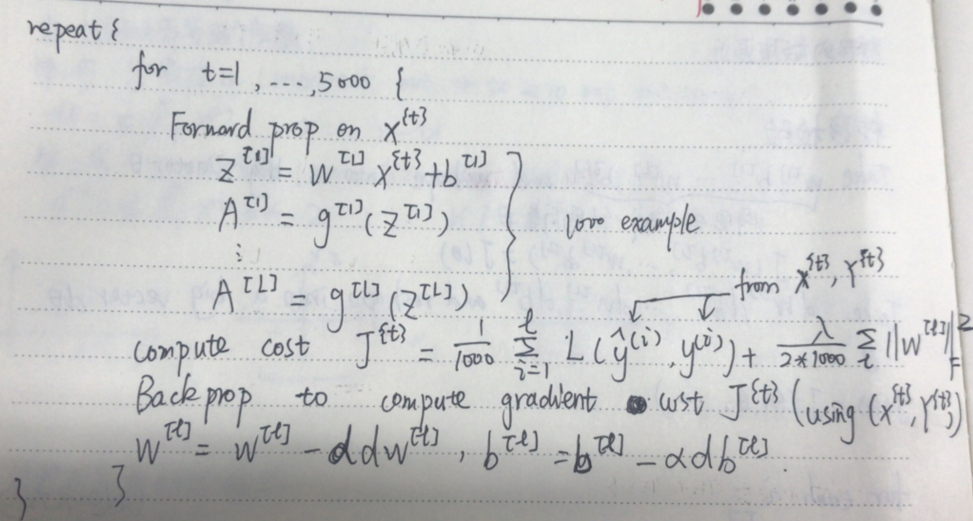 repeat {
for t=1, ..., 5000 {
Forward prop on X^{t}
Z^[1] = W^[1] X^{t} + b^[1]
A^[1] = g^[1](Z^[1])
⋮
1000 example
A^[L] = g^[L](Z^[L])
from X^{t}, Y^{t}
compute cost J^{t} = 1/1000 Σ_{i=1}^{l} L(ŷ^(i), y^(i)) + λ/(2*1000) Σ_l ||W^[l]||_F^2
Backprop to compute gradient cost J^{t} (using (X^{t}, Y^{t}))
W^[l] = W^[l] - αdw^[l], b^[l] = b^[l] - αdb^[l].
} }